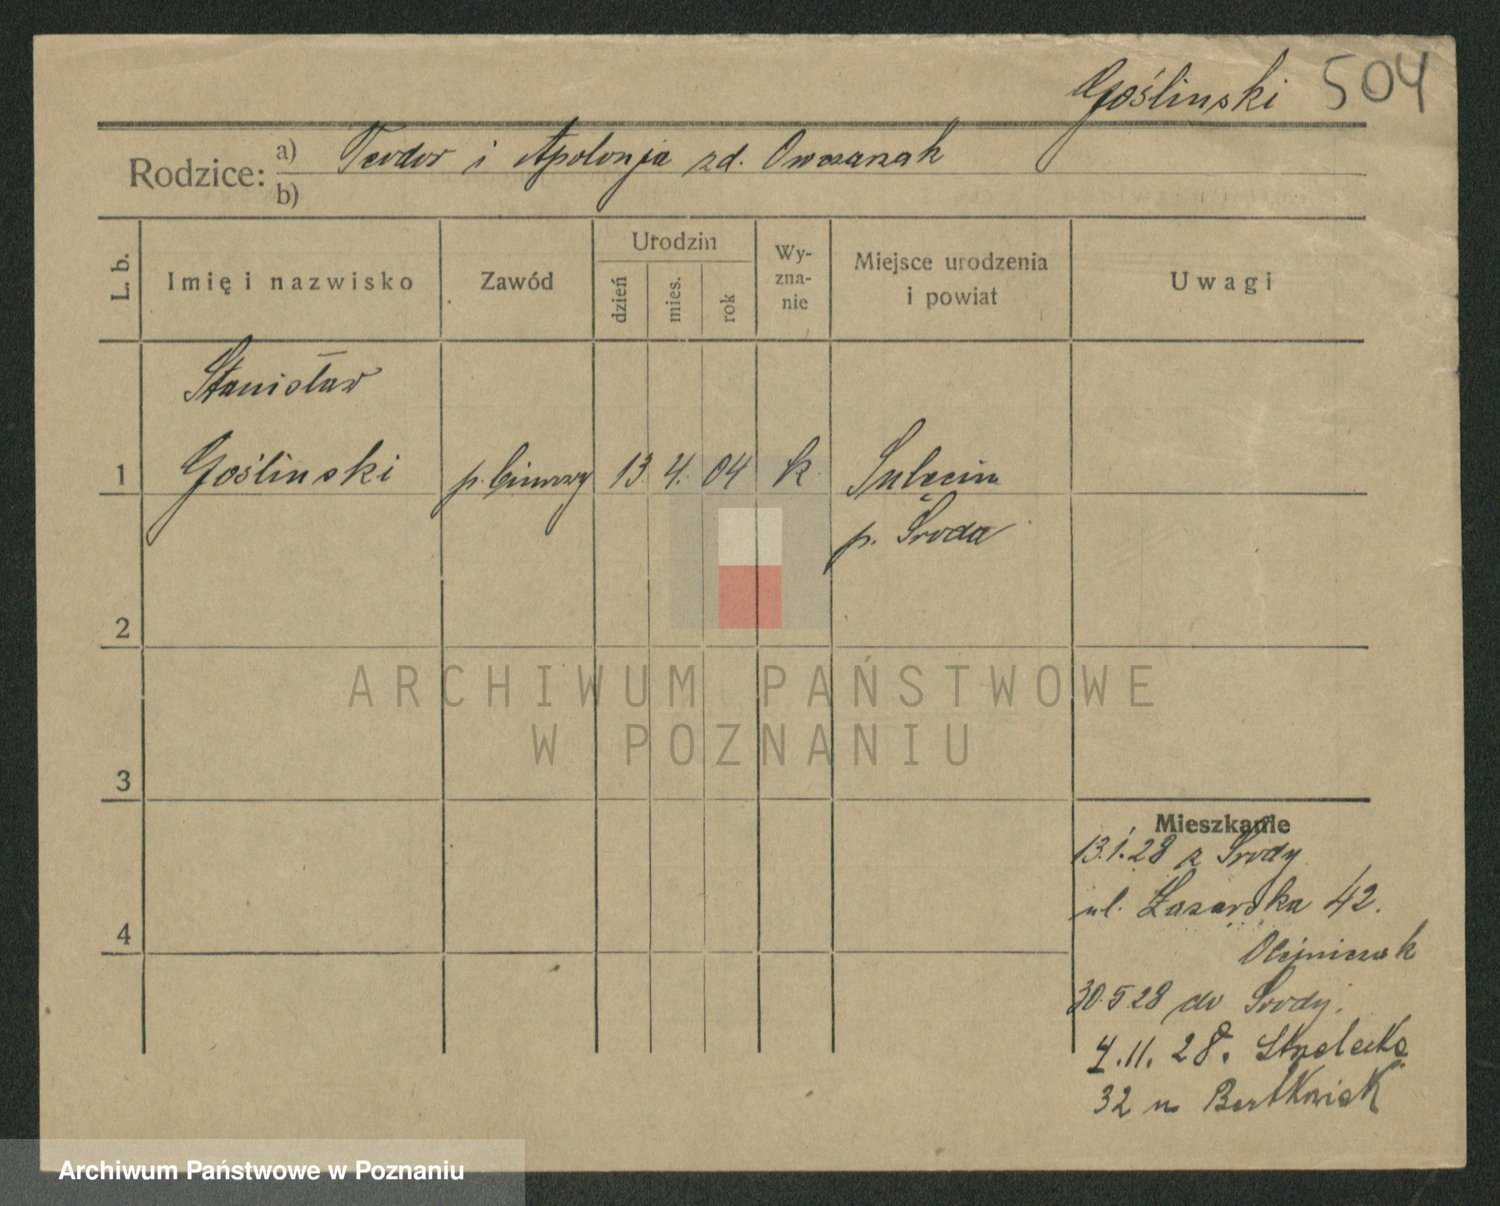 Goślinski 504
Rodzice: a) Teodor i Apolonja zd. Owczarzak
b)
L. b. Imię i nazwisko Zawód Urodzin dzień mies. rok Wyznanie Miejsce urodzenia i powiat Uwagi
Stanisław
1 Goślinski p. biurowy 13 4. 04 k Sulęcin
p. Środa
2
ARCHIWUM PAŃSTWOWE
W POZNANIU
3
Mieszkanie
13.1.28 z Środy
ul. Łazarska 42.
4
Olejniczak
30.5.28 do Środy.
4.11.28. Strzelecka
32 u Bartkowiak
Archiwum Państwowe w Poznaniu